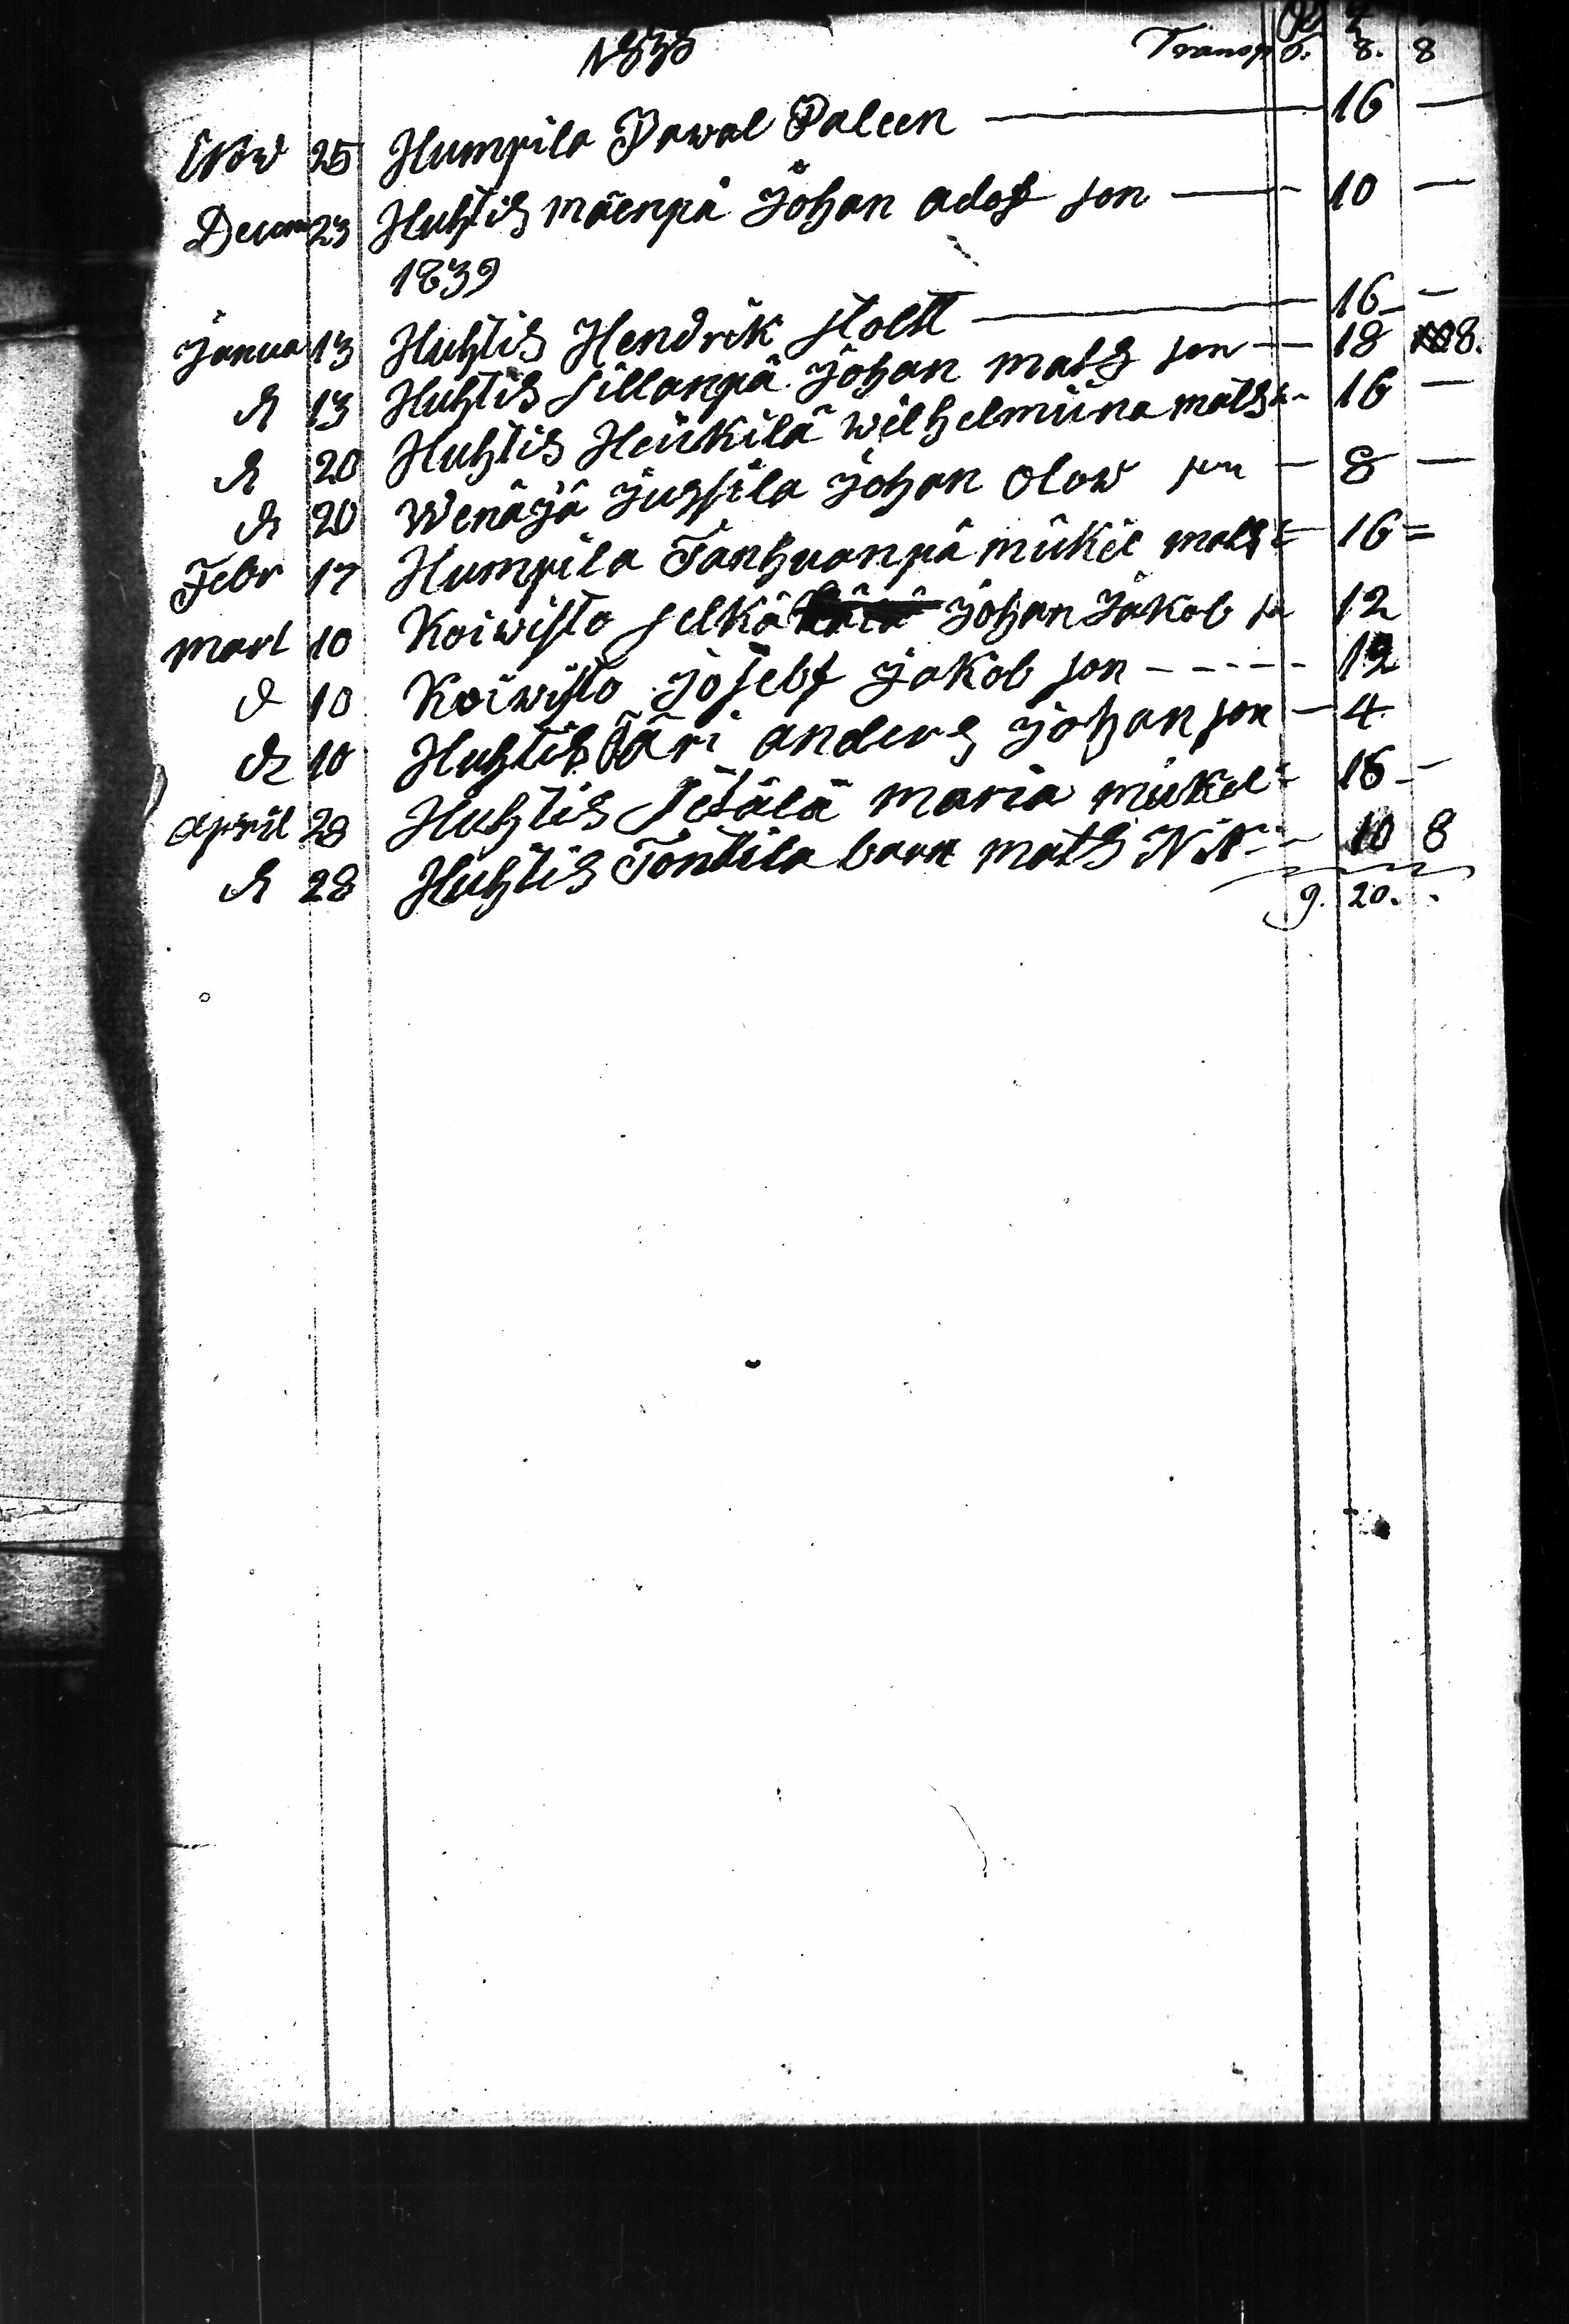 1838 Transp 6. 8. 8
Now 25 Humpila Pawal Paleen — 16 —
Decem 23 Huhtis mäenpä Johan adof son — 10 —
1839
Janua 13 Huhtis Hendrik stolt — 16 —
d 13 Huhtis sillanpä Johan mats son — 18 8.
d 20 Huhtis Heikilä wilhelmiina mats — 16 —
d 20 Wenäjä Jussila Johan Olow son — 8 —
Febr 17 Humpila Tanhuanpä mikel mats — 16 =
mart 10 Koiwisto selkä Johan Jakob so 12
d 10 Koiwisto josebf Jakob son - - - - 12
d 10 Huhtis Äri anders Johan son — 4
april 28 Huhtis maria mikel 16 —
d 28 Huhtis Tontila barn mats N N 10 8
9. 20. .